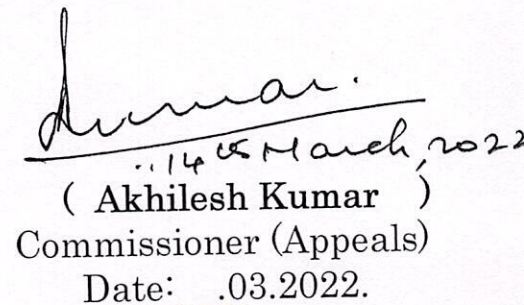 Kumar.
14th March, 2022
( Akhilesh Kumar )
Commissioner (Appeals)
Date: .03.2022.